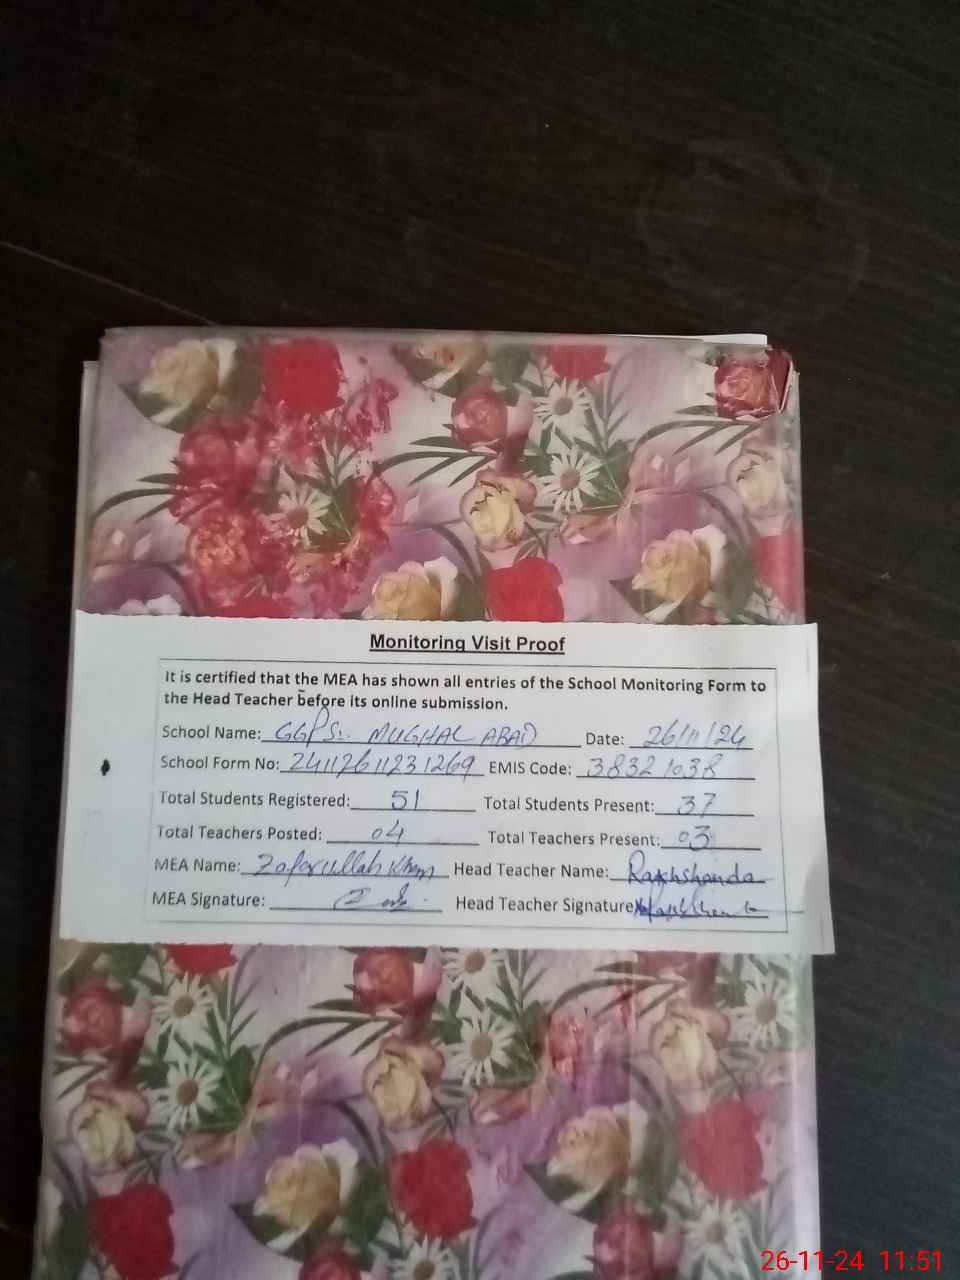 Monitoring Visit Proof
It is certified that the MEA has shown all entries of the School Monitoring Form to
the Head Teacher before its online submission.
School Name: GGPS MUGHAL ABAD Date: 26/11/24
School Form No: 24112611231269 EMIS Code: 38321038
Total Students Registered: 51 Total Students Present: 37
Total Teachers Posted: 04 Total Teachers Present: 03
MEA Name: Zafarullah Khan Head Teacher Name: Rakhshanda
MEA Signature: Head Teacher Signature
26-11-24 11:51